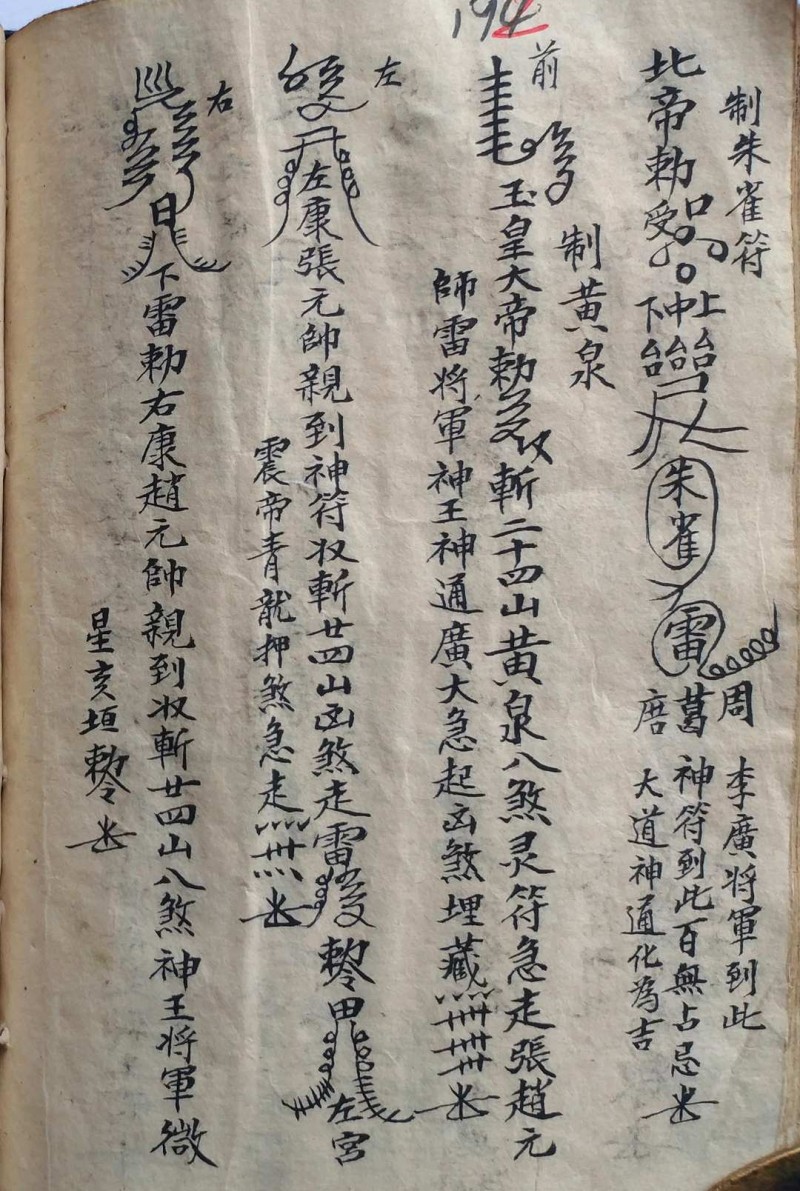 194
制朱雀符
北帝勅受
上
中
下
台台台
朱雀
雷
周
葛
唐
李廣将軍到此
神符到此百無占忌
大道神通化為吉
制黄泉
前
玉皇大帝勅 斬二十四山黄泉八煞灵符急走張趙元
師雷将軍神王神通廣大急起凶煞埋藏
左
左康張元帥親到神符收斬廿四山凶煞走雷 勅令甲 左宮
震帝青龍押煞急走
右
日
下雷勅右康趙元帥親到收斬廿四山八煞神王将軍微
星亥垣勅令